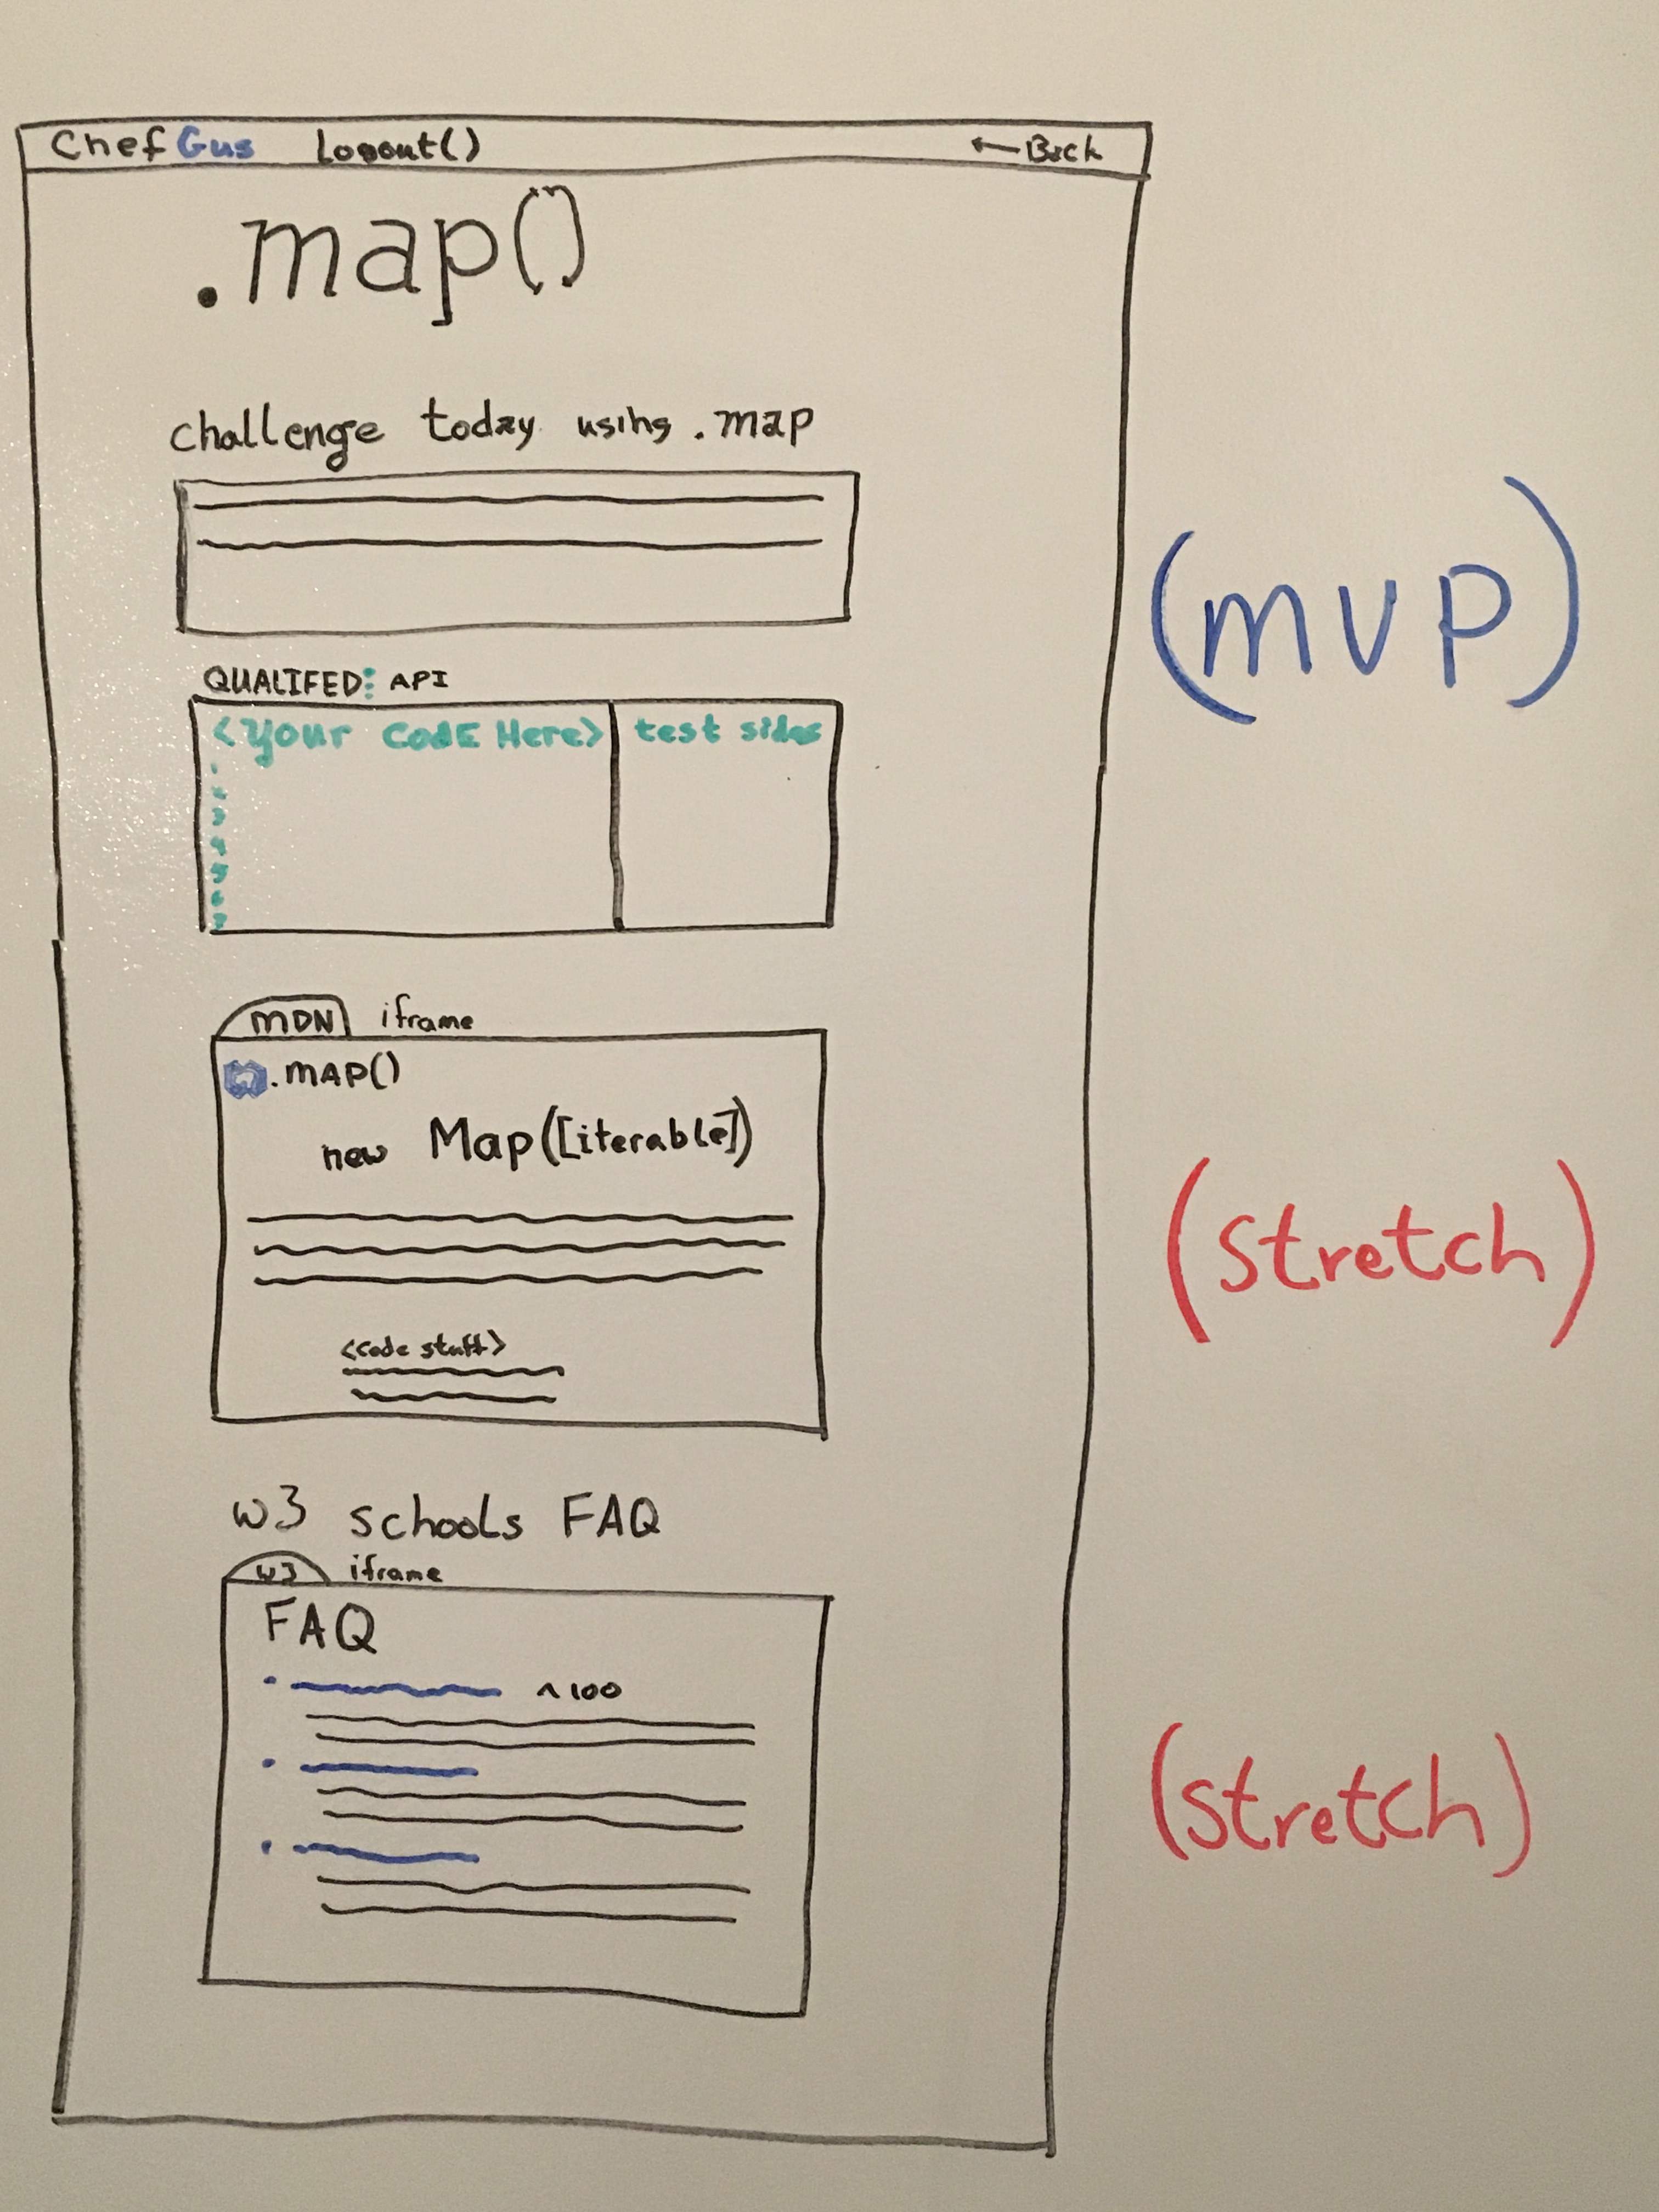 Chef Gus logout() ←Back
.map()
challenge today using .map
QUALIFED: API
<Your CodE Here> test sides
1
2
3
4
5
6
7
(mvp)
MDN iframe
.MAP()
new Map([iterable])
(stretch)
<code stuff>
w3 schools FAQ
w3 iframe
FAQ
^100
(stretch)